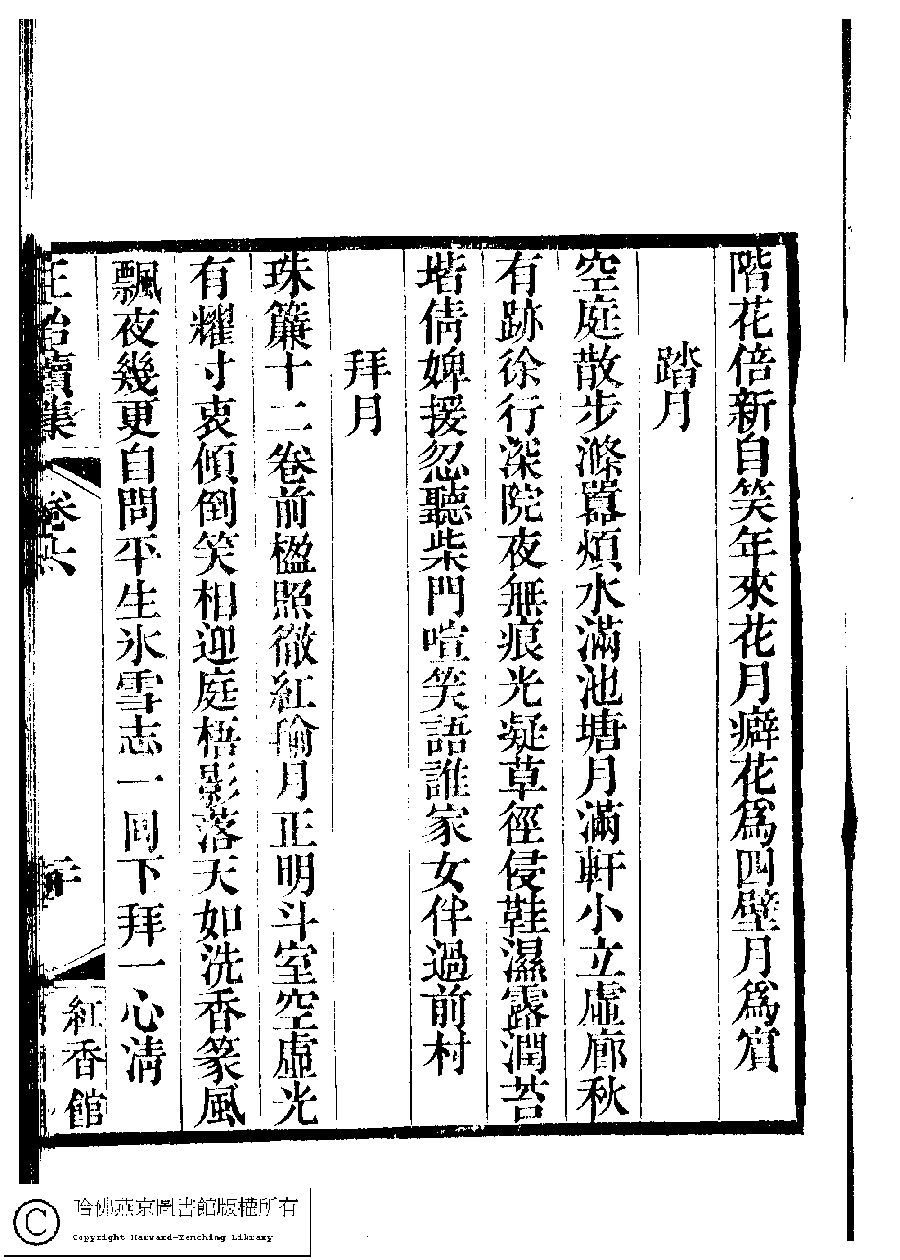 階花倍新自笑年來花月癖花爲四壁月爲賓
踏月
空庭散步滌囂煩水滿池塘月滿軒小立虛廊秋
有跡徐行深院夜無痕光凝草徑侵鞋濕露潤苔
堦倩婢援忽聽柴門喧笑語誰家女伴過前村
拜月
珠簾十二卷前楹照徹紅
月正明斗室空虛光
有耀寸衷傾倒笑相迎庭梧影落天如洗香篆風
飄夜幾更自問平生氷雪志一回下拜一心清
正始續集
卷六
紅香館
哈佛燕京圖書館版權所有
Copyright Harvard-Yenching Library